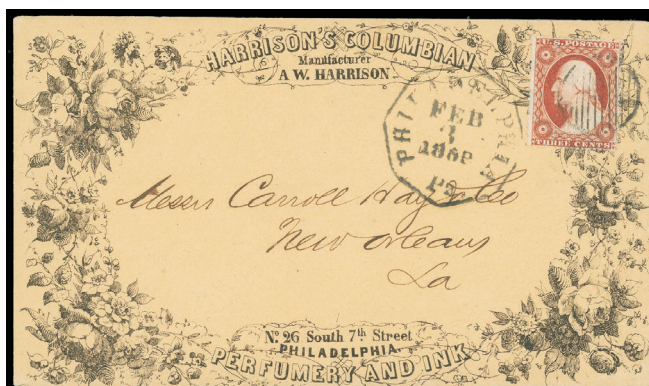 HARRISON'S COLUMBIAN
Manufacturer
A. W. HARRISON
U.S. POSTAGE
THREE CENTS
PHILADELPHIA
FEB
3
Pa.
Messrs Carroll Hoy & Co
New Orleans
La
No. 26 South 7th Street
PHILADELPHIA.
PERFUMERY AND INK